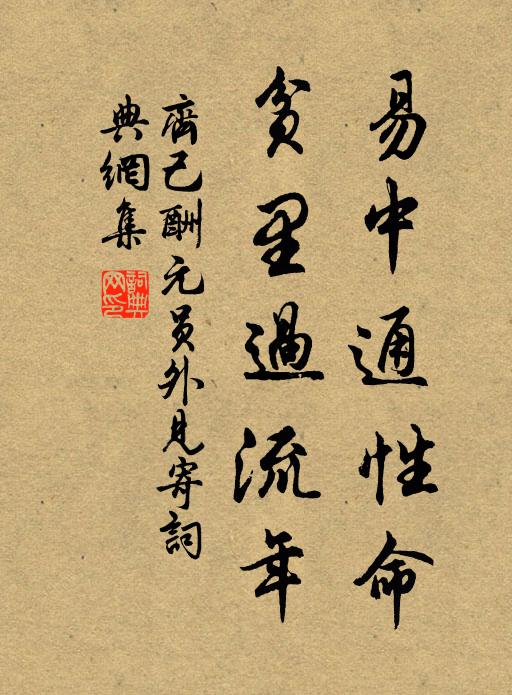 易中通性命
貧里過流年
齊己酬元員外見寄詞
典網集
詞典網印